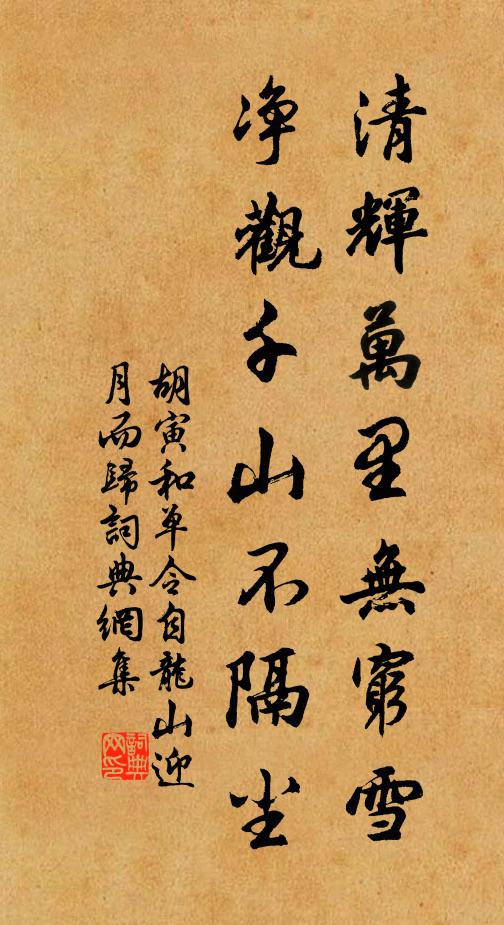 清輝萬里無窮雪
净觀千山不隔尘
胡寅和单令自龍山迎
月而歸詞典網集
詞典
网印